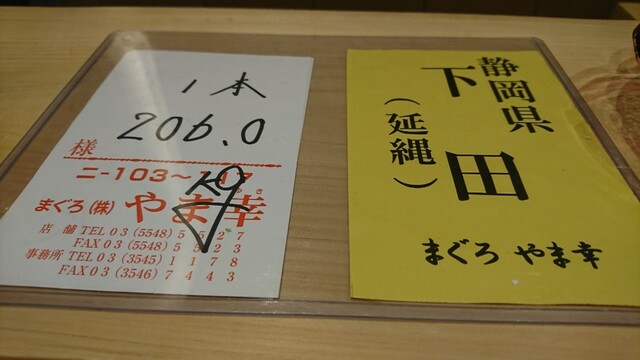 1本
206.0
様
ニ-103~117
まぐろ(株)やま幸
店 舗 TEL 03 (5548) 5527
FAX 03 (5548) 5523
事務所 TEL 03 (3545) 1178
FAX 03 (3546) 7443
静岡県
下田
(延縄)
まぐろ やま幸